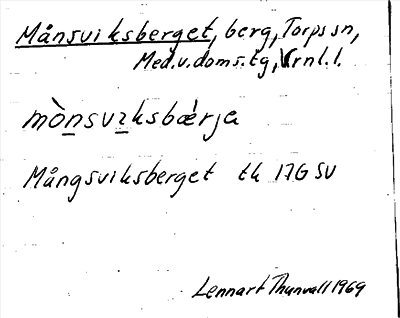 Månsviksberget, berg, Torps sn,
Med.v.doms.tg, Vrnl.l.
mònsvıksbǽrja
Mångsviksberget tk 17G SV
Lennart Thunvall 1969